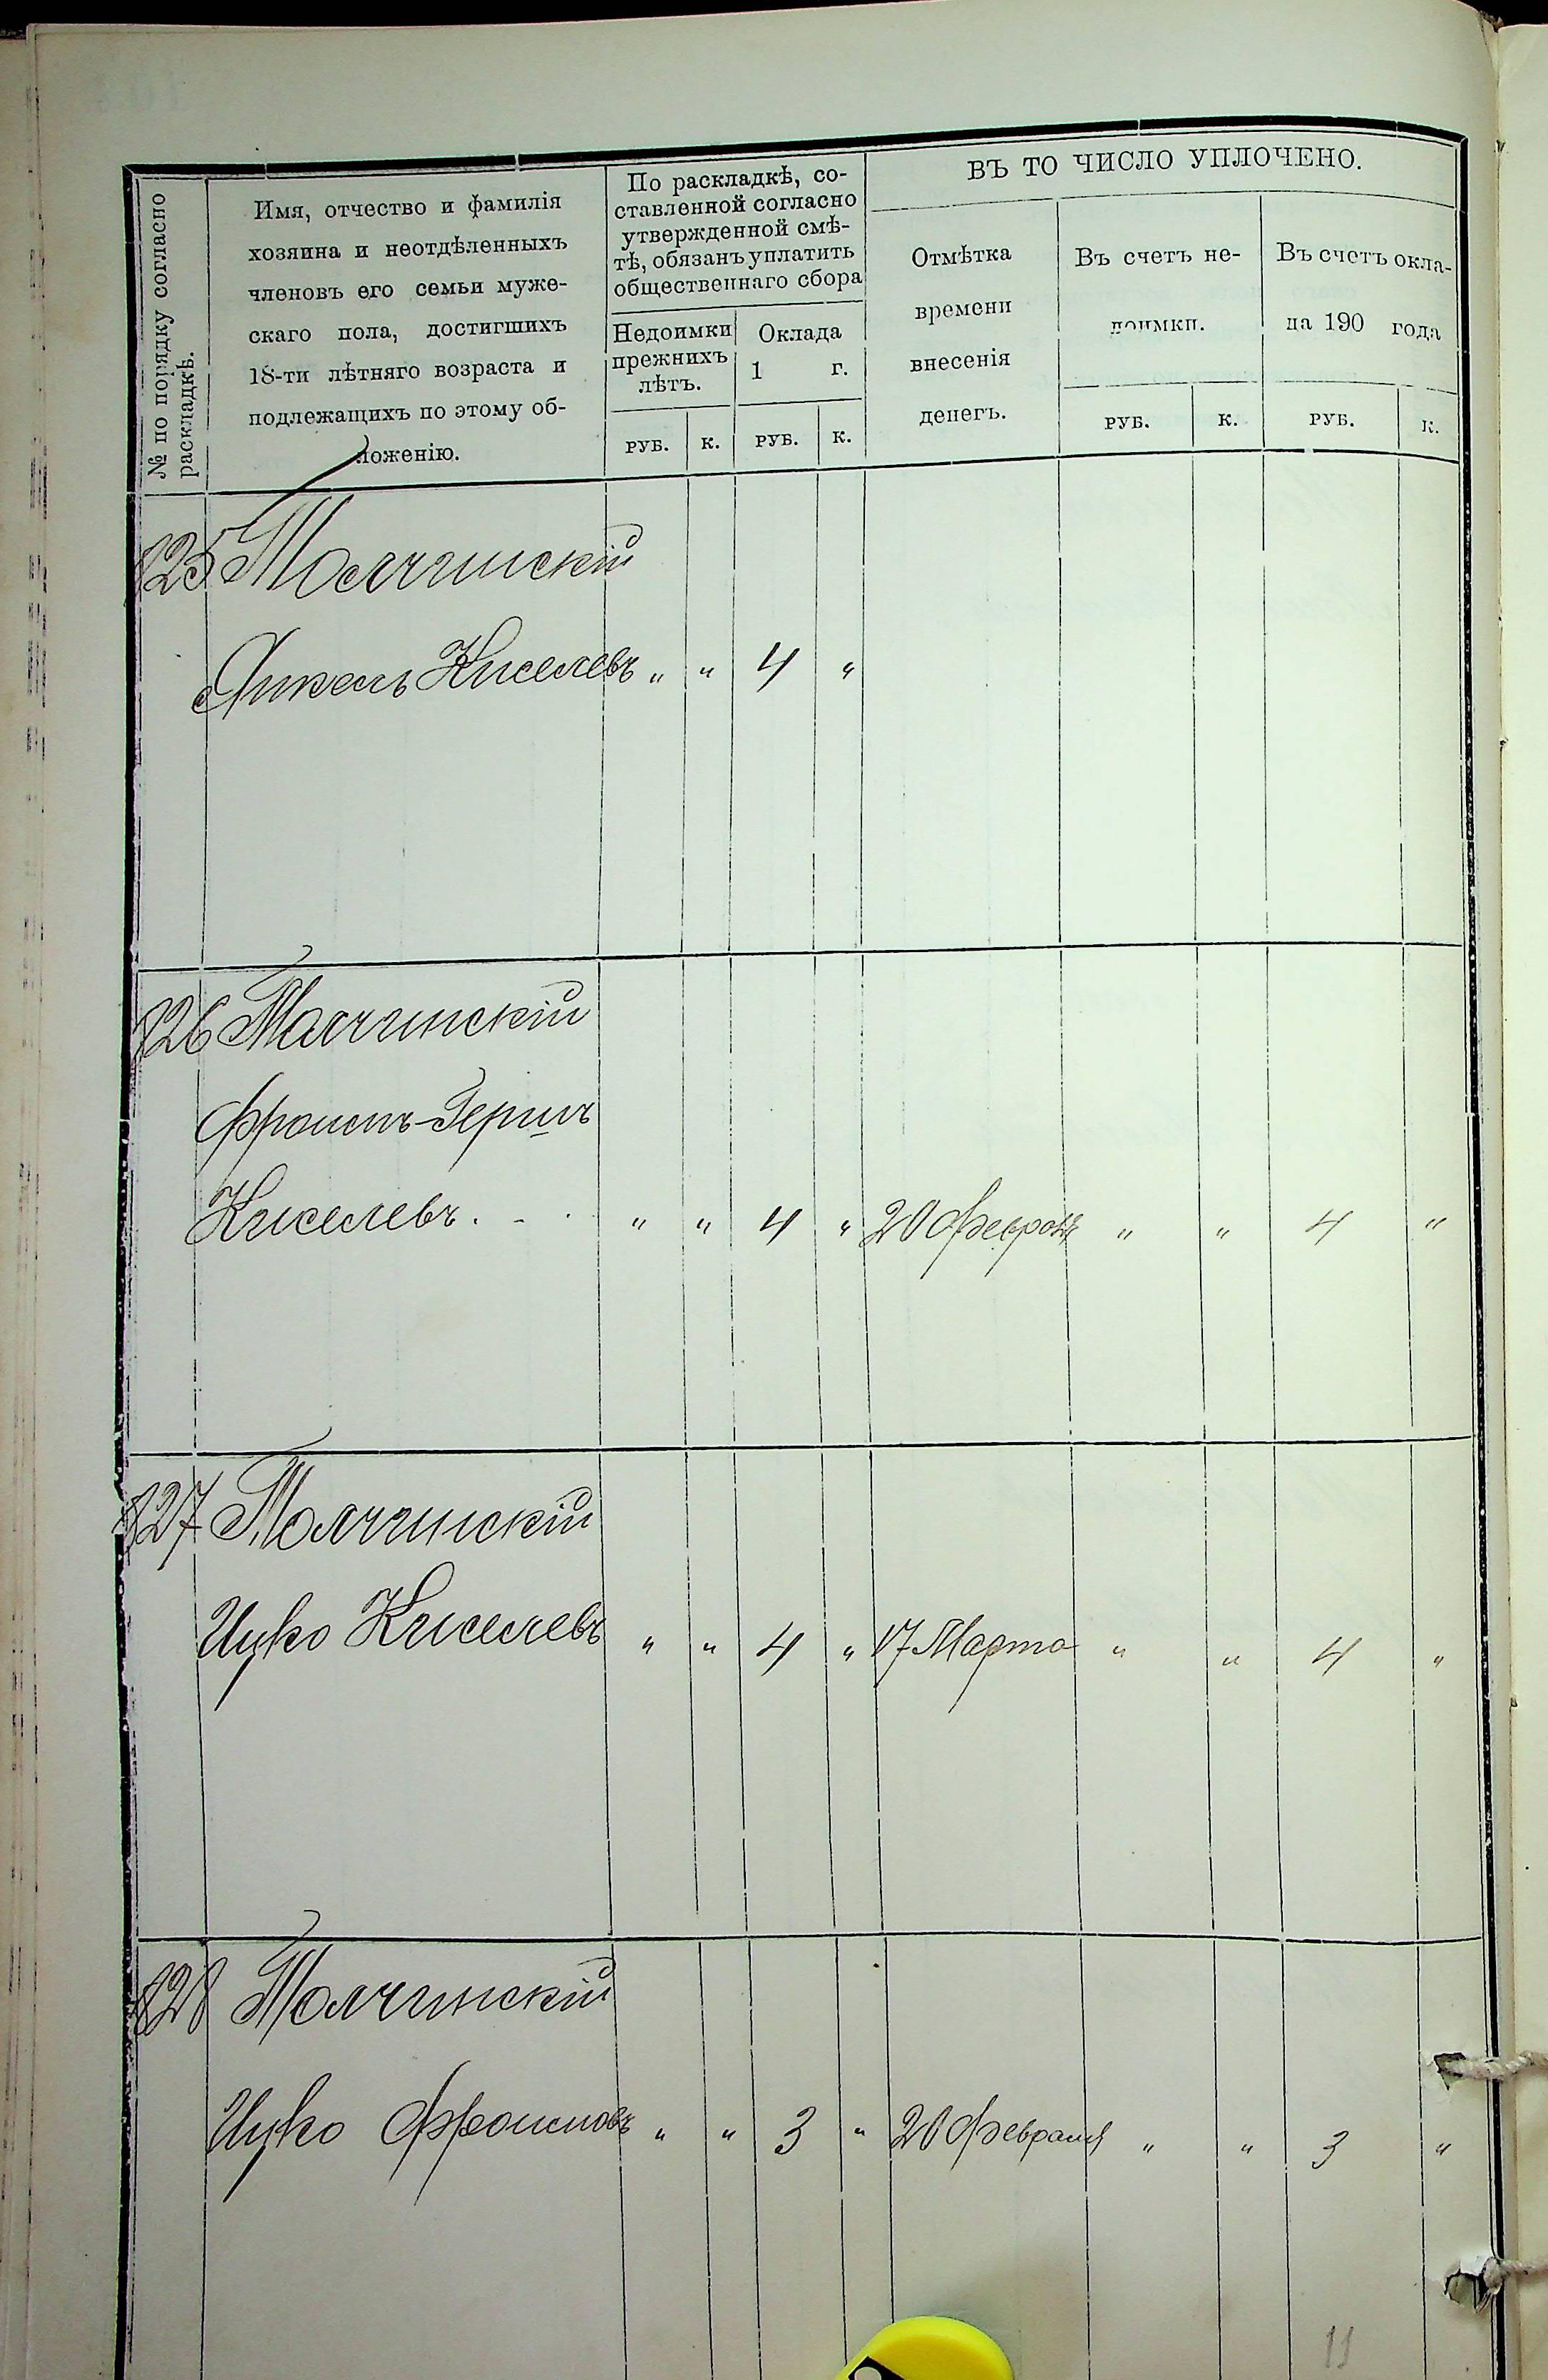 № по порядку согласно
раскладкѣ.
Имя, отчество и фамилія
хозяина и неотдѣленныхъ
членовъ его семьи муже-
скаго пола, достигшихъ
18-ти лѣтняго возраста и
подлежащихъ по этому об-
ложенію.
По раскладкѣ, со-
ставленной согласно
утвержденной смѣ-
тѣ, обязанъ уплатить
общественнаго сбора
Недоимки
прежнихъ
лѣтъ.
Оклада
1 г.
РУБ. К. РУБ. К.
ВЪ ТО ЧИСЛО УПЛОЧЕНО.
Отмѣтка
времени
внесенія
денегъ.
Въ счетъ не-
доимки.
Въ счетъ окла-
да 190 года
РУБ. К. РУБ. К.
825 Толчинскій
Янкель Киселевъ „ „ 4 „
826 Толчинскій
Фроимъ-Гершъ
Киселевъ . - . „ „ 4 „ 20 „ „ 4 „
827 Толчинскій
Ицко Киселевъ „ „ 4 „ 17 Марта „ „ 4 „
828 Толчинскій
Ицко Фроимовъ „ „ 3 „ 20 Февраля „ „ 3 „
11